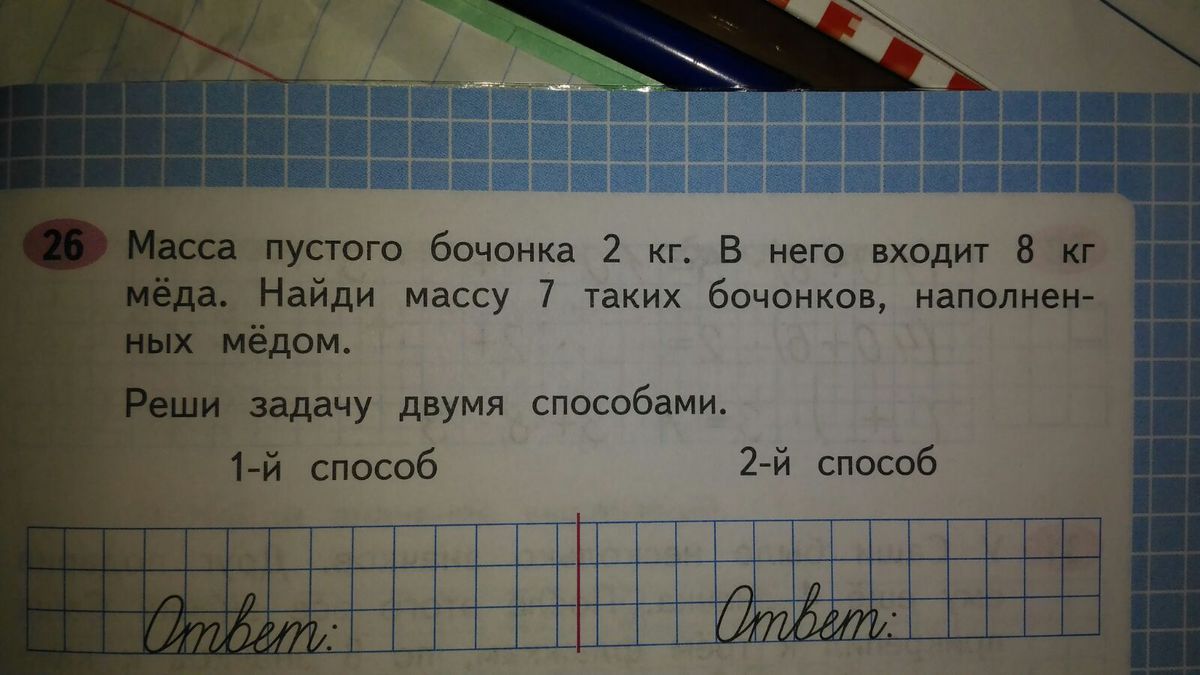 26 Масса пустого бочонка 2 кг. В него входит 8 кг
мёда. Найди массу 7 таких бочонков, наполнен-
ных мёдом.
Реши задачу двумя способами.
1-й способ 2-й способ
Ответ: Ответ: